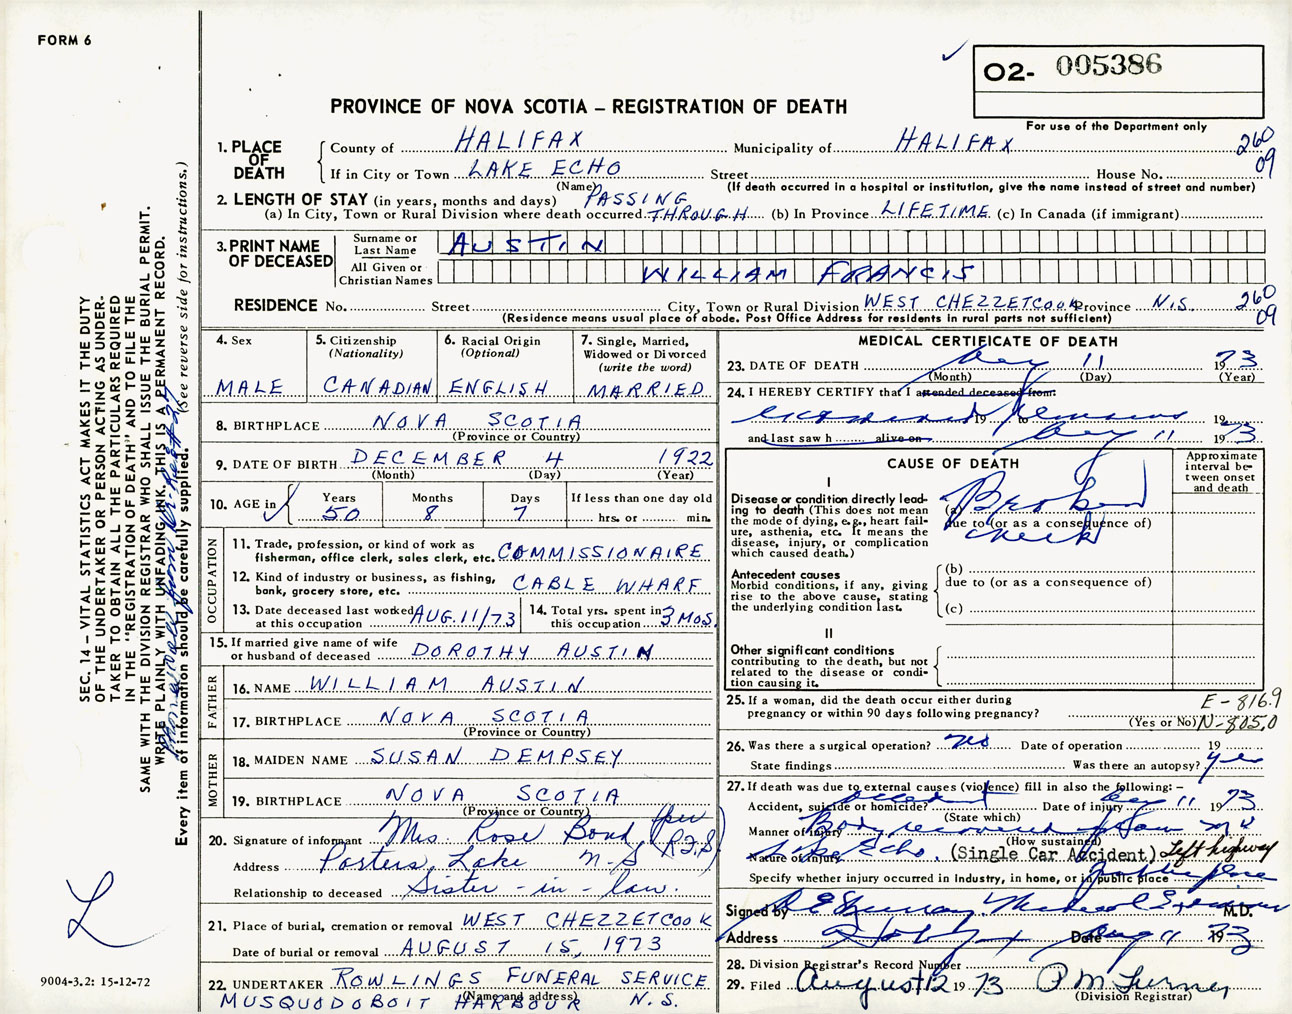 FORM 6
O2- 005386
PROVINCE OF NOVA SCOTIA – REGISTRATION OF DEATH
For use of the Department only
1. PLACE OF DEATH
County of HALIFAX Municipality of HALIFAX 260
If in City or Town LAKE ECHO Street House No. 09
(Name) (If death occurred in a hospital or institution, give the name instead of street and number)
2. LENGTH OF STAY (in years, months and days) PASSING
(a) In City, Town or Rural Division where death occurred THROUGH (b) In Province LIFETIME (c) In Canada (if immigrant)
3. PRINT NAME OF DECEASED
Surname or Last Name AUSTIN
All Given or Christian Names WILLIAM FRANCIS
RESIDENCE No. Street City, Town or Rural Division WEST CHEZZETCOOK Province N.S. 260
(Residence means usual place of abode. Post Office Address for residents in rural parts not sufficient) 09
4. Sex
MALE
5. Citizenship
(Nationality)
CANADIAN
6. Racial Origin
(Optional)
ENGLISH
7. Single, Married,
Widowed or Divorced
(write the word)
MARRIED
8. BIRTHPLACE NOVA SCOTIA
(Province or Country)
9. DATE OF BIRTH DECEMBER 4 1922
(Month) (Day) (Year)
10. AGE in Years Months Days If less than one day old
50 8 7 hrs. or min.
OCCUPATION
11. Trade, profession, or kind of work as
fisherman, office clerk, sales clerk, etc. COMMISSIONAIRE
12. Kind of industry or business, as fishing,
bank, grocery store, etc. CABLE WHARF
13. Date deceased last worked
at this occupation AUG. 11/73
14. Total yrs. spent in
this occupation 3 MOS.
15. If married give name of wife
or husband of deceased DOROTHY AUSTIN
FATHER
16. NAME WILLIAM AUSTIN
17. BIRTHPLACE NOVA SCOTIA
(Province or Country)
MOTHER
18. MAIDEN NAME SUSAN DEMPSEY
19. BIRTHPLACE NOVA SCOTIA
(Province or Country)
20. Signature of informant Mrs. Rose Bond (per
Address Porters Lake N-S R.F.S)
Relationship to deceased Sister-in-law.
21. Place of burial, cremation or removal WEST CHEZZETCOOK
Date of burial or removal AUGUST 15, 1973
22. UNDERTAKER ROWLINGS FUNERAL SERVICE
(Name and address)
MUSQUODOBOIT HARBOUR N.S.
MEDICAL CERTIFICATE OF DEATH
23. DATE OF DEATH Aug 11 1973
(Month) (Day) (Year)
24. I HEREBY CERTIFY that I attended deceased from:
examined 19 to remains 19
and last saw h alive on Aug 11 1973
CAUSE OF DEATH
Approximate
interval be-
tween onset
and death
I
Disease or condition directly lead-
ing to death (This does not mean
the mode of dying, e.g., heart fail-
ure, asthenia, etc. It means the
disease, injury, or complication
which caused death.)
(a) Broken
due to (or as a consequence of)
Antecedent causes
Morbid conditions, if any, giving
rise to the above cause, stating
the underlying condition last.
(b)
due to (or as a consequence of)
(c)
II
Other significant conditions
contributing to the death, but not
related to the disease or condi-
tion causing it.
25. If a woman, did the death occur either during
pregnancy or within 90 days following pregnancy?
(Yes or No)
E-816.9
N-805.0
26. Was there a surgical operation? no Date of operation 19
State findings Was there an autopsy? yes
27. If death was due to external causes (violence) fill in also the following: –
Accident, suicide or homicide? accident Date of injury Aug 11 1973
(State which)
Manner of injury Body recovered from
(How sustained)
Nature of injury Lake Echo. (Single Car Accident) Left highway
Specify whether injury occurred in Industry, in home, or in public place Public place
Signed by Medical Examiner M.D.
Address Halifax Date Aug 11 1973
28. Division Registrar's Record Number
29. Filed August 12 1973 P M Turner
(Division Registrar)
SEC. 14 – VITAL STATISTICS ACT MAKES IT THE DUTY
OF THE UNDERTAKER OR PERSON ACTING AS UNDER-
TAKER TO OBTAIN ALL THE PARTICULARS REQUIRED
IN THE "REGISTRATION OF DEATH" AND TO FILE THE
SAME WITH THE DIVISION REGISTRAR WHO SHALL ISSUE THE BURIAL PERMIT.
WRITE PLAINLY WITH UNFADING INK. THIS IS A PERMANENT RECORD.
Every item of information should be carefully supplied. (See reverse side for instructions.)
9004-3.2: 15-12-72